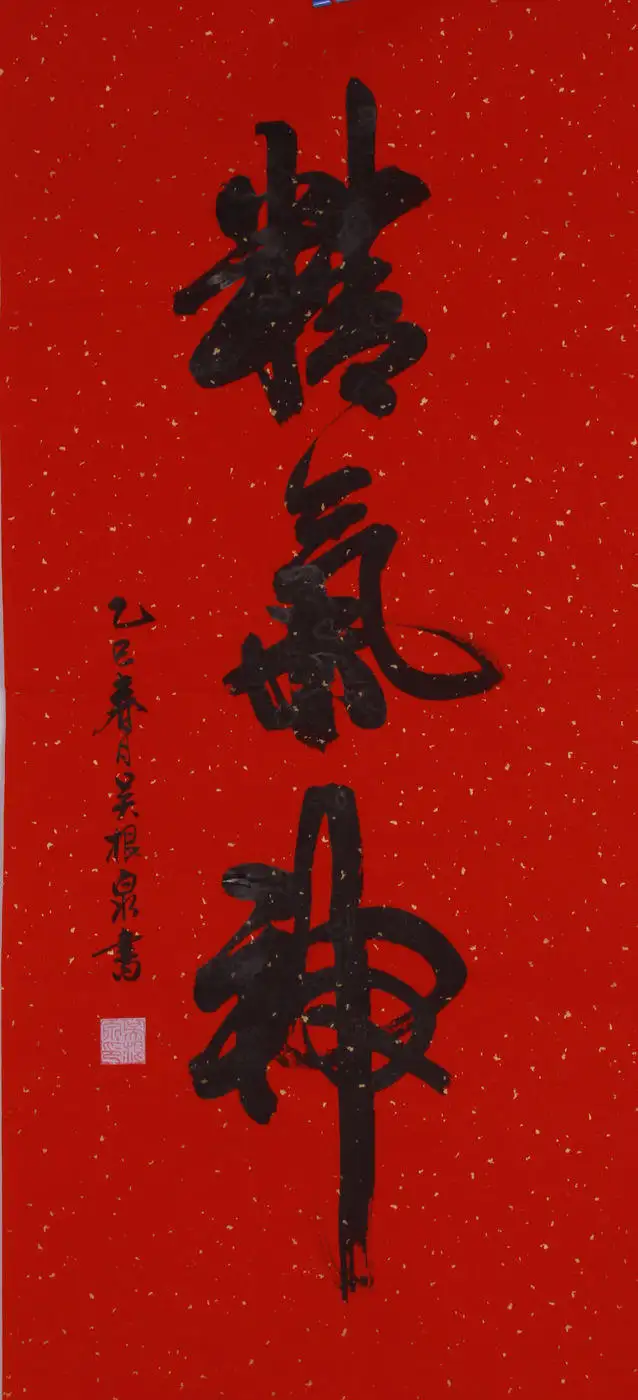 精氣神
乙巳春月吴根泉書